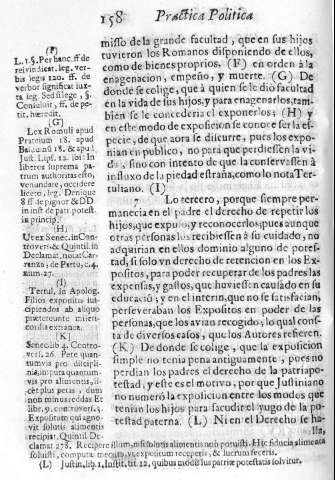 158 Practica Politica
misso de la grande facultad, que en sus hijos
tuvieron los Romanos disponiendo de ellos,
como de bienes proprios. (F) en orden à la
enagenacion, empeño, y muerte. (G) De
donde se colige, que à quien se le dio facultad
en la vida de sus hijos, y para enagenarlos, tam-
bien se le concederia el exponerlos; (H) y
en este modo de exposicion se conoce ser la es-
pecie, de que aora se discurre, pues los expo-
nian en publico, no para que perdiessen la vi-
da, sino con intento de que la conservassen à
influxo de la piedad estraña, como lo nota Ter-
tuliano. (I)
7 Lo tercero, porque siempre per-
manecia en el padre el derecho de repetir los
hijos, que expuso, y reconocerlos, pues aunque
otras personas los recibiessen à su cuidado, no
adquirian en ellos dominio alguno de potes-
tad, si solo vn derecho de retencion en los Ex-
positos, para poder recuperar de los padres las
expensas, y gastos, que huviessen causado en su
educaciō; y en el interin, que no se satisfacian,
perseveraban los Expositos en poder de las
personas, que los avian recogido; lo qual cons-
ta de diversos casos, que los Autores refieren.
(K) De donde se colige, que la exposicion
simple no tenia pena antiguamente, pues no
perdian los padres el derecho de la patriapo-
testad, y este es el motivo, por que Justiniano
no numerò la exposicion entre los modos que
tenian los hijos para sacudir el yugo de la po-
testad paterna. (L) Ni en el Derecho se ha-
lla,
(F)
L. 1. §. Per hanc, ff. de
reivindicat. leg. ver-
bis legis 120. ff. de
verbor. significat. iux-
ta leg. Sed si lege, §.
Consuluit, ff. de pe-
tit. hæredit.
(G)
Lex Romuli apud
Prateium 18. apud
Balduin. 18. & apud
Just. Lips. 12. ibi: In
liberos suprema pa-
trum authoritas esto,
venundare, occidere
liceto, leg. Denique
8. ff. de pignor. & DD.
in inst. de patr. potest.
in princip.
(H)
Ut ex Senec. in Con-
trovers. & Quintil. in
Declamat. notat Car-
ranz. de Partu, c. 4.
num. 27.
(I)
Tertul. in Apolog.
Filios expositos sus-
cipiendos ab aliquo
prætereunte miseri-
cordia extranea.
(K)
Senec. lib. 4. Contro-
vers. 26. Pete quan-
tum vis pro discipli-
nis, impura quantum-
vis pro alimentis, li-
cet plus petas, dum
non minus reddas. Et
lib. 9. controvers. 3.
Expositum qui agno-
vit solutis alimentis
recipiat. Quintil. De-
clamat. 278. Recipere illum, nisi solutis alimentis non potuisti. Hic fiducia alimenta
solvisti, computa metuit, vt expositum reciperet, & lucrum feceris.
(L) Justin. lib. 1. Instit. tit. 12. quibus modis ius patriæ potestatis solvitur.